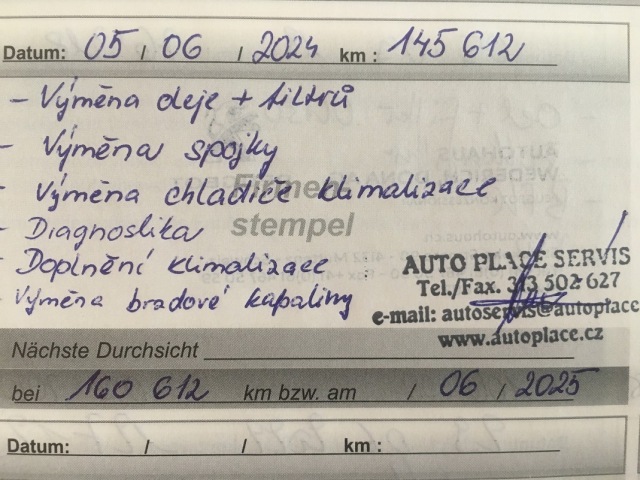 Datum: 05 / 06 / 2024 km : 145 612
- Výměna oleje + filtrů
- Výměna spojky
- Výměna chladiče klimalizace
Firmen-
stempel
- Diagnostika
- Doplnění klimalizace
- Výměna bradové kapaliny
AUTO PLACE SERVIS
Tel./Fax. 313 502 627
e-mail: autoservis@autoplace
www.autoplace.cz
Nächste Durchsicht
bei 160 612 km bzw. am / 06 / 2025
Datum: / / km :